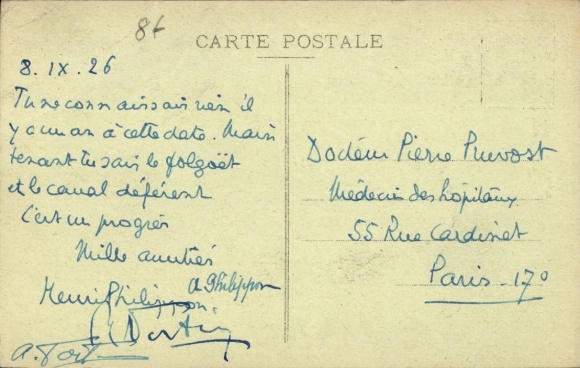 86
CARTE POSTALE
8.IX.26
Tu ne connaissais rien il
y a un an à cette date. Main
tenant tu sais le folgoët
et le canal déférent
C'est un progrès
Mille amitiés
A Philippon
Henri Philippon
Docteur Pierre Pruvost
Médecin des hôpitaux
55 Rue Cardinet
Paris - 17°